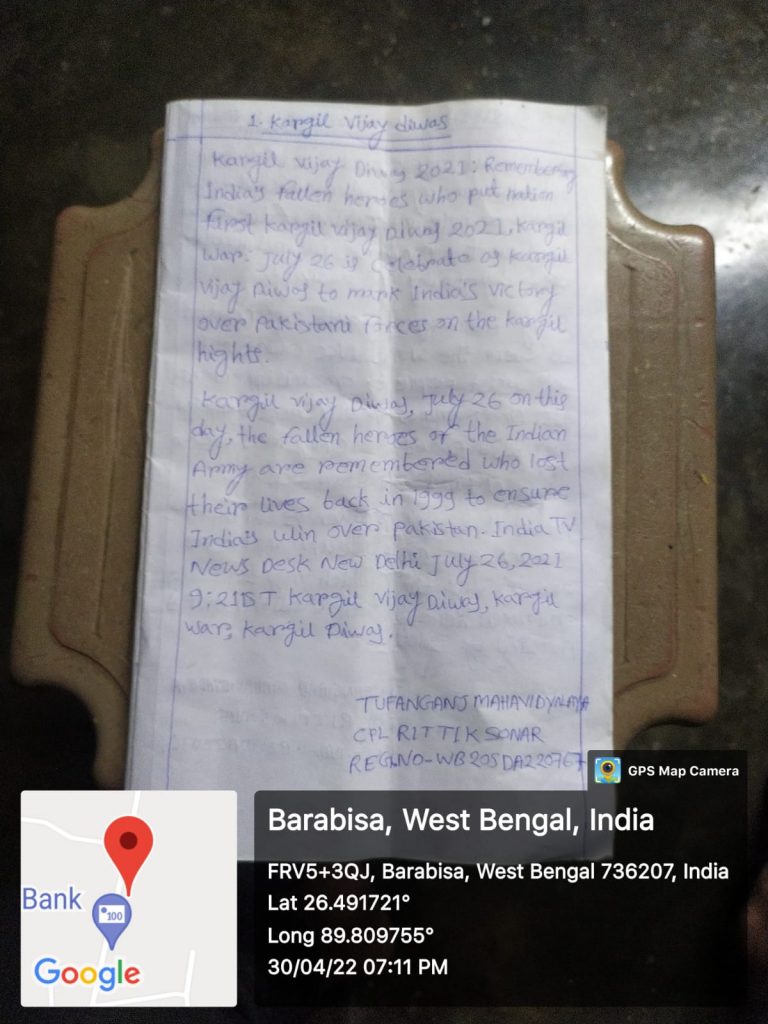 1. Kargil Vijay diwas
Kargil Vijay Diwas 2021: Remembering
India's fallen heroes who put nation
First Kargil Vijay Diwas 2021, Kargil
War: July 26 is Celebrate as Kargil
Vijay Diwas to mark India's victory
over Pakistani Forces on the Kargil
hights.
Kargil Vijay Diwas, July 26 on this
day, the fallen heroes of the Indian
Army are remembered who lost
their lives back in 1999 to ensure
India's win over Pakistan. India TV
News Desk New Delhi July 26, 2021
9:21IST Kargil Vijay Diwas, Kargil
War, Kargil Diwas.
TUFANGANJ MAHAVIDYALAYA
CPL RITTIK SONAR
REG.NO-WB20SDA220767
GPS Map Camera
Barabisa, West Bengal, India
FRV5+3QJ, Barabisa, West Bengal 736207, India
Lat 26.491721°
Long 89.809755°
30/04/22 07:11 PM
Bank
100
Google